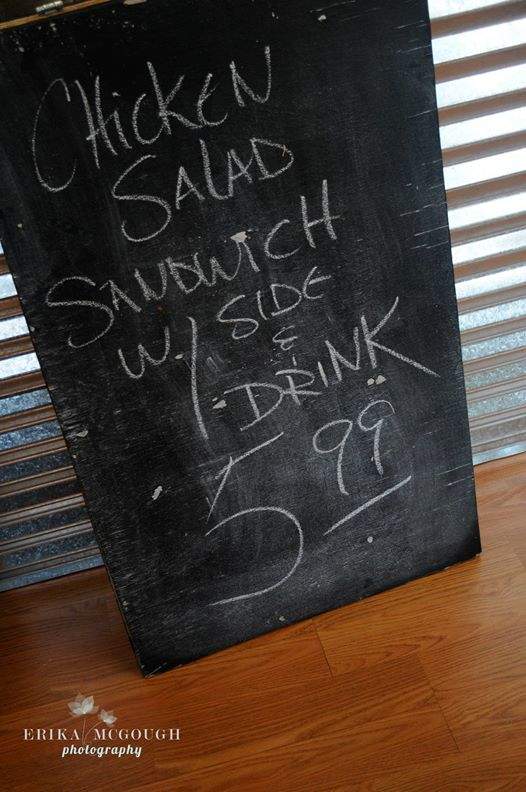 CHiCKEN
SALAD
SANDWICH
W/ SIDE
&
DRINK
5 99
ERIKA MCGOUGH
photography